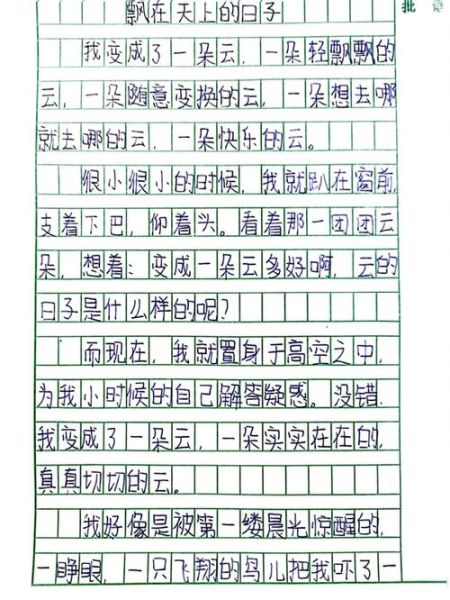 飘在天上的日子
批语
我变成了一朵云，一朵轻飘飘的
云，一朵随意变换的云，一朵想去哪
就去哪的云，一朵快乐的云。
很小很小的时候，我就趴在窗前，
支着下巴，仰着头。看着那一团团云
朵，想着：变成一朵云多好啊，云的
日子是什么样的呢？
而现在，我就置身于高空之中，
为我小时候的自己解答疑惑。没错，
我变成了一朵云，一朵实实在在的，
真真切切的云。
我好像是被第一缕晨光惊醒的，
一睁眼，一只飞翔的鸟儿把我吓了一